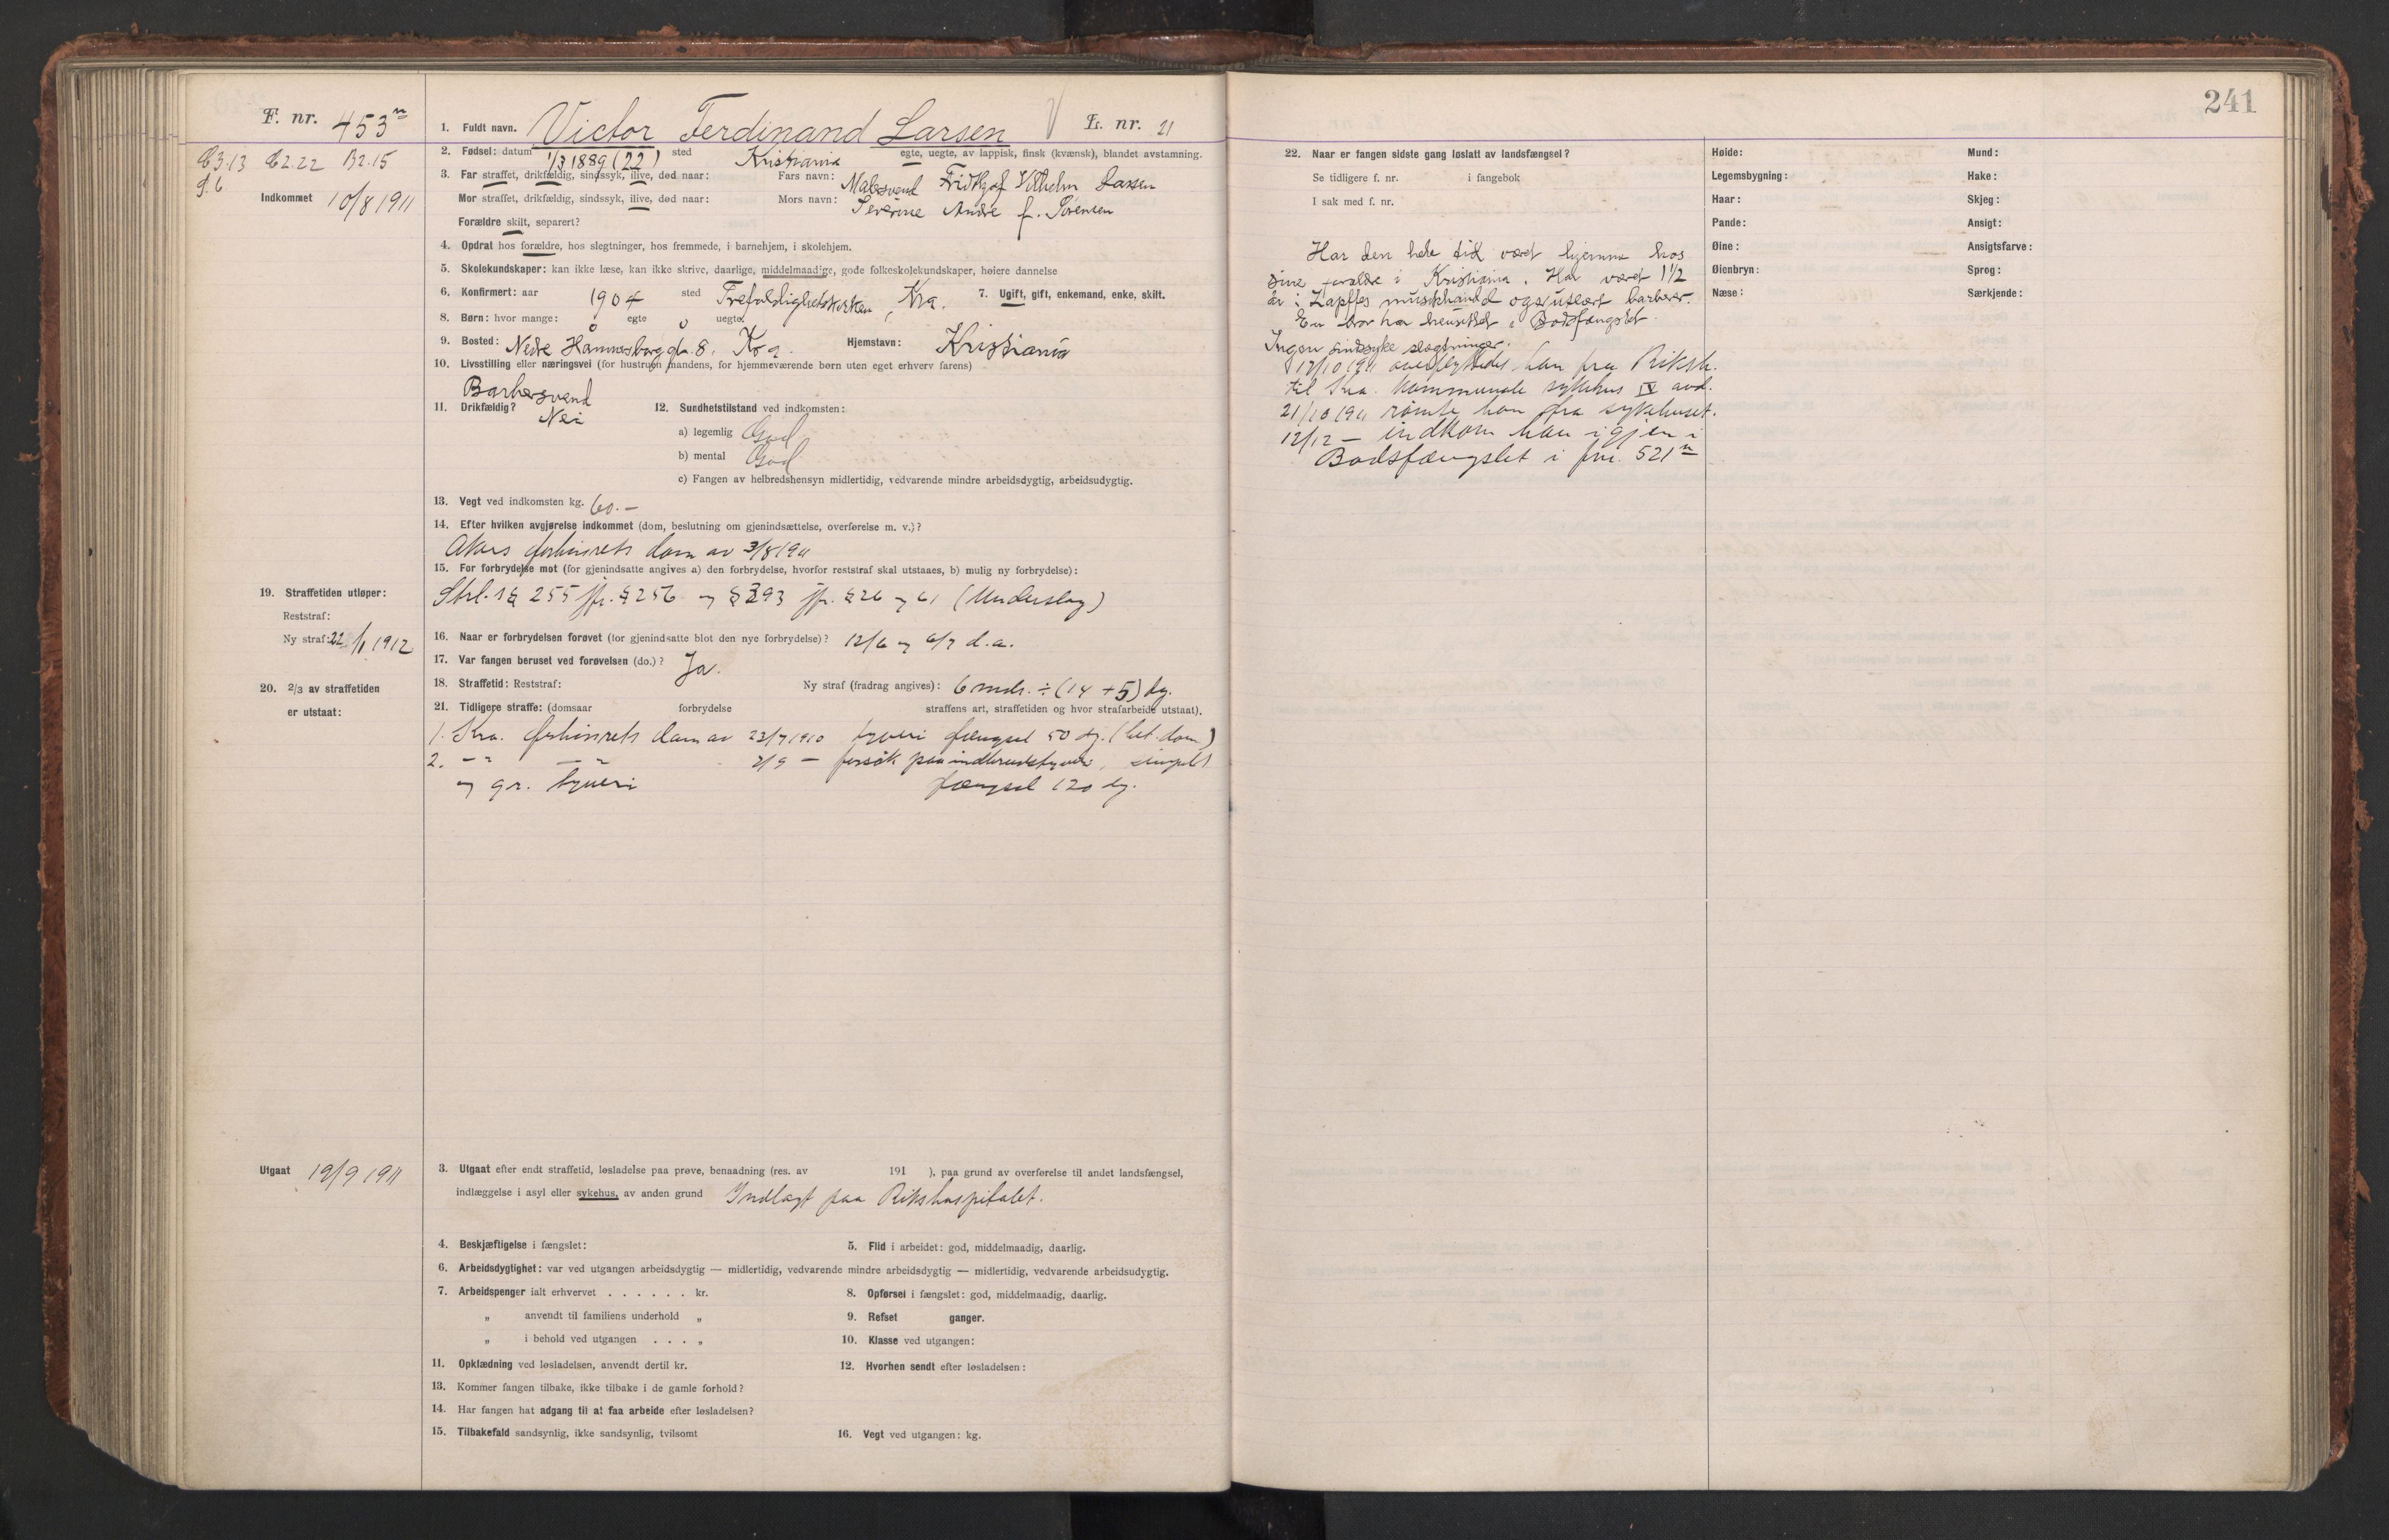 241
F. nr. 453
C3.13 C2.22 B2.15
Indkommet 10/8 1911
1. Fuldt navn. Victor Ferdinand Larsen L. nr. 21
2. Fødsel: datum 1/3 1889 (22) sted Kristiania egte, uegte, av lappisk, finsk (kvænsk), blandet avstamning.
3. Far straffet, drikfældig, sindssyk, ilive, død naar: Fars navn: Malersvend Fridtjof Vilhelm Larsen
Mor straffet, drikfældig, sindssyk, ilive, død naar: Mors navn: Severine Andre f. Sørensen
Forældre skilt, separert?
4. Opdrat hos forældre, hos slegtninger, hos fremmede, i barnehjem, i skolehjem.
5. Skolekundskaper: kan ikke læse, kan ikke skrive, daarlige, middelmaadige, gode folkeskolekundskaper, høiere dannelse
6. Konfirmert: aar 1904 sted Trefoldighetskirken, Kra. 7. Ugift, gift, enkemand, enke, skilt.
8. Børn: hvor mange: 0 egte 0 uegte.
9. Bosted: Nedre Hammersborg gt. 8. Kra. Hjemstavn: Kristiania
10. Livsstilling eller næringsvei (for hustruen mandens, for hjemmeværende børn uten eget erhverv farens)
Barbersvend
11. Drikfældig? Nei 12. Sundhetstilstand ved indkomsten:
a) legemlig God
b) mental God
c) Fangen av helbredshensyn midlertidig, vedvarende mindre arbeidsdygtig, arbeidsudygtig.
13. Vegt ved indkomsten kg. 60.—
14. Efter hvilken avgjørelse indkommet (dom, beslutning om gjenindsættelse, overførelse m. v.)?
Akers forhørsrets dom av 3/8 1911
15. For forbrydelse mot (for gjenindsatte angives a) den forbrydelse, hvorfor reststraf skal utstaaes, b) mulig ny forbrydelse):
Strl. § 255 jfr. § 256 og § 393 jfr. § 26 og 61 (Underslag)
19. Straffetiden utløper:
Reststraf:
Ny straf: 22/1 1912
16. Naar er forbrydelsen forøvet (for gjenindsatte blot den nye forbrydelse)? 12/6 og 6/7 d.a.
17. Var fangen beruset ved forøvelsen (do.)? Ja.
18. Straffetid: Reststraf: Ny straf (fradrag angives): 6 mdr. ÷ (14 + 5) dg.
20. 2/3 av straffetiden
er utstaat:
21. Tidligere straffe: (domsaar forbrydelse straffens art, straffetiden og hvor strafarbeide utstaat).
1. Kra. forhørsrets dom av 23/7 1910 tyveri fængsel 50 dg. (bet. dom)
2. —"— —"— 3/9 — forsøk paa indbrudstyveri, simpelt
og gr. tyveri fængsel 120 dg.
Utgaat 19/9 1911
3. Utgaat efter endt straffetid, løsladelse paa prøve, benaadning (res. av 191 ), paa grund av overførelse til andet landsfængsel,
indlæggelse i asyl eller sykehus, av anden grund Indlagt paa Rikshospitalet.
4. Beskjæftigelse i fængslet: 5. Flid i arbeidet: god, middelmaadig, daarlig.
6. Arbeidsdygtighet: var ved utgangen arbeidsdygtig — midlertidig, vedvarende mindre arbeidsdygtig — midlertidig, vedvarende arbeidsudygtig.
7. Arbeidspenger ialt erhvervet . . . . . . kr. 8. Opførsel i fængslet: god, middelmaadig, daarlig.
„ anvendt til familiens underhold „ 9. Refset ganger.
„ i behold ved utgangen . . . „ 10. Klasse ved utgangen:
11. Opklædning ved løsladelsen, anvendt dertil kr. 12. Hvorhen sendt efter løsladelsen:
13. Kommer fangen tilbake, ikke tilbake i de gamle forhold?
14. Har fangen hat adgang til at faa arbeide efter løsladelsen?
15. Tilbakefald sandsynlig, ikke sandsynlig, tvilsomt 16. Vegt ved utgangen: kg.
22. Naar er fangen sidste gang løslatt av landsfængsel?
Se tidligere f. nr. i fangebok
I sak med f. nr.
Har den hele tid været hjemme hos
sine forældre i Kristiania. Har været 1 1/2
år i Zapffes musikhandel også utlært barberer.
En bror har hensittet i Bodsfængslet.
Ingen sindssyke slegtninger.
17/10 1911 overflyttedes han fra Riksh.
til Kra. kommunale sykehus IV avd.
21/10 1911 rømte han fra sykehuset.
12/12 — indkom han igjen i
Bodsfængslet i fnr. 521
Høide: Mund:
Legemsbygning: Hake:
Haar: Skjeg:
Pande: Ansigt:
Øine: Ansigtsfarve:
Øienbryn: Sprog:
Næse: Særkjende: